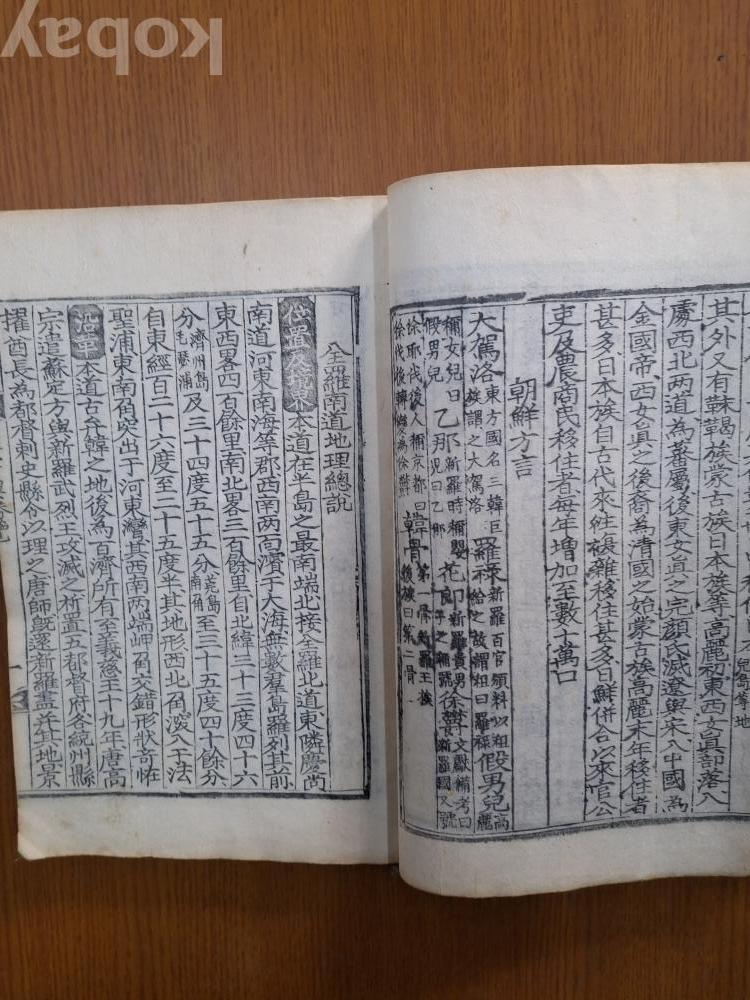 kobay
其外又有靺鞨族蒙古族日本族等高麗初東西女眞部落入
處西北两道為蕃屬後東女眞之完顏氏滅遼與宋入中國為
金國帝西女眞之後裔為清國之始蒙古族高麗末年移住者
甚多日本族自古代來徃複雜移住甚多日鮮併合以來官公
吏及農商民移住者每年增加至數十萬口
朝鮮方言
大駕洛 東方國名三韓巨族謂之大駕洛 羅祿 新羅百官頒料以租給之故謂租曰羅祿 假男兒 高麗
稱女兒曰假男兒 乙那 新羅時稱嬰兒曰乙那 花郎 新羅貴男良子之稱號 徐菀 文獻備考曰新羅國又號
徐耶伐後人稱京都曰徐伐後轉為徐菀 韓骨 第一骨新羅王族後族曰第二骨
全羅南道地理總說
位置及境界 本道在半島之最南端北接全羅北道東隣慶尙
南道河東南海等郡西南两面濱于大海無數羣島羅列其前
東西畧四百餘里南北畧三百餘里自北緯三十三度四十六
分 濟州島毛瑟浦 及三十四度五十五分 莞島南角 至三十五度四十餘分
自東經百二十六度至二十五度半其地形西北角深入于法
聖浦東南角突出于河東灣其西南两端岬角交錯形狀奇怪
沿革 本道古弁韓之地後為百濟所有至義慈王十九年唐高
宗遣蘇定方與新羅武烈王攻滅之析置五都督府各統州縣
擢酋長為都督刺史縣令以理之唐師旣逐新羅盡幷其地景